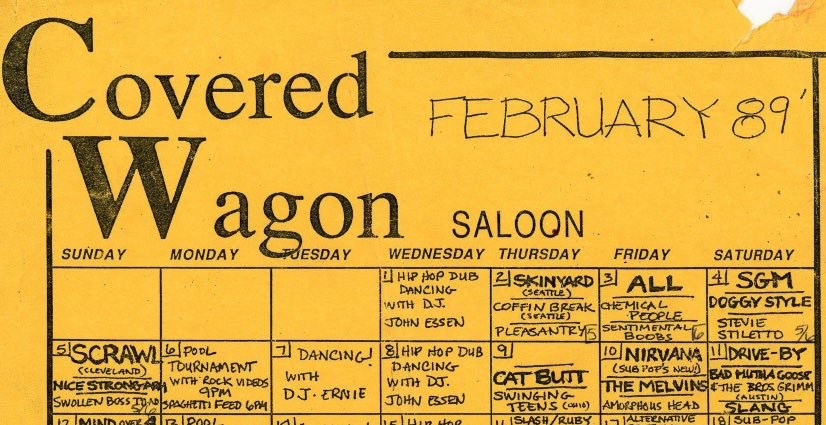 Covered
Wagon
SALOON
FEBRUARY 89'
SUNDAY MONDAY TUESDAY WEDNESDAY THURSDAY FRIDAY SATURDAY
1 HIP HOP DUB
DANCING
WITH D.J.
JOHN ESSEN
2 SKINYARD
(SEATTLE)
COFFIN BREAK
(SEATTLE)
PLEASANTRY
3 ALL
CHEMICAL
PEOPLE
SENTIMENTAL
BOOBS
4 SGM
DOGGY STYLE
STEVIE
STILETTO
5 SCRAWL
(CLEVELAND)
NICE STRONG ARM
SWOLLEN BOSS
6 POOL
TOURNAMENT
WITH ROCK VIDEOS
9PM
SPAGHETTI FEED 6PM
7 DANCING!
WITH
D.J. ERNIE
8 HIP HOP DUB
DANCING
WITH DJ.
JOHN ESSEN
9
CAT BUTT
SWINGING
TEENS (OHIO)
10 NIRVANA
(SUB POP'S NEW!)
THE MELVINS
AMORPHOUS HEAD
11 DRIVE-BY
BAD MUTHA GOOSE
& THE BROS GRIMM
(AUSTIN)
SLANG
12 MIND OVER
13 POOL
15 HIP HOP
SLASH/RUBY
17 ALTERNATIVE
18 SUB-POP